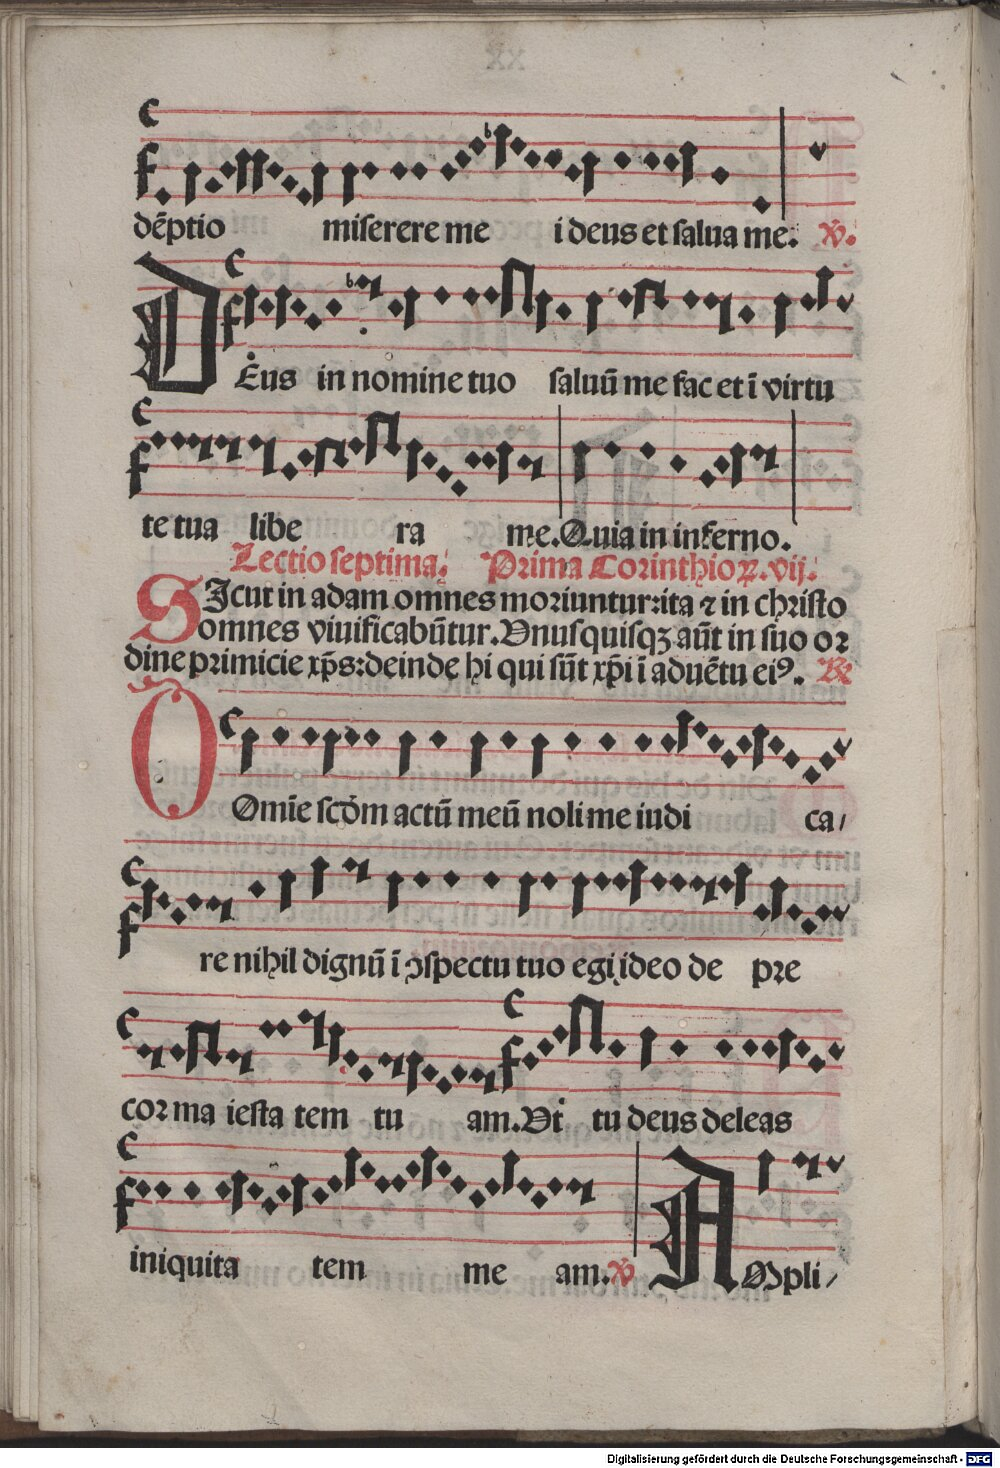 dēptio miserere me i deus et salua me. V̇.
DEus in nomine tuo saluū me fac et ī virtu
te tua libe ra me. Quia in inferno.
Lectio septima. Prima Corinthioꝝ. vij.
SIcut in adam omnes moriuntur: ita ⁊ in christo
omnes viuificabūtur. Vnusquisqꝫ aūt in suo or
dine primicie xp̄s: deinde hi qui sūt xp̄i ī aduētu eiꝰ. ℟
DOmīe scd̄m actū meū noli me iudi ca/
re nihil dignū ī ꝯspectu tuo egi ideo de pre
cor ma iesta tem tu am. Vt tu deus deleas
iniquita tem me am. V̇ AMpli/
Digitalisierung gefördert durch die Deutsche Forschungsgemeinschaft - DFG